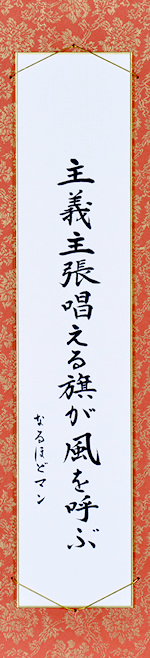 主義主張唱える旗が風を呼ぶ
なるほどマン